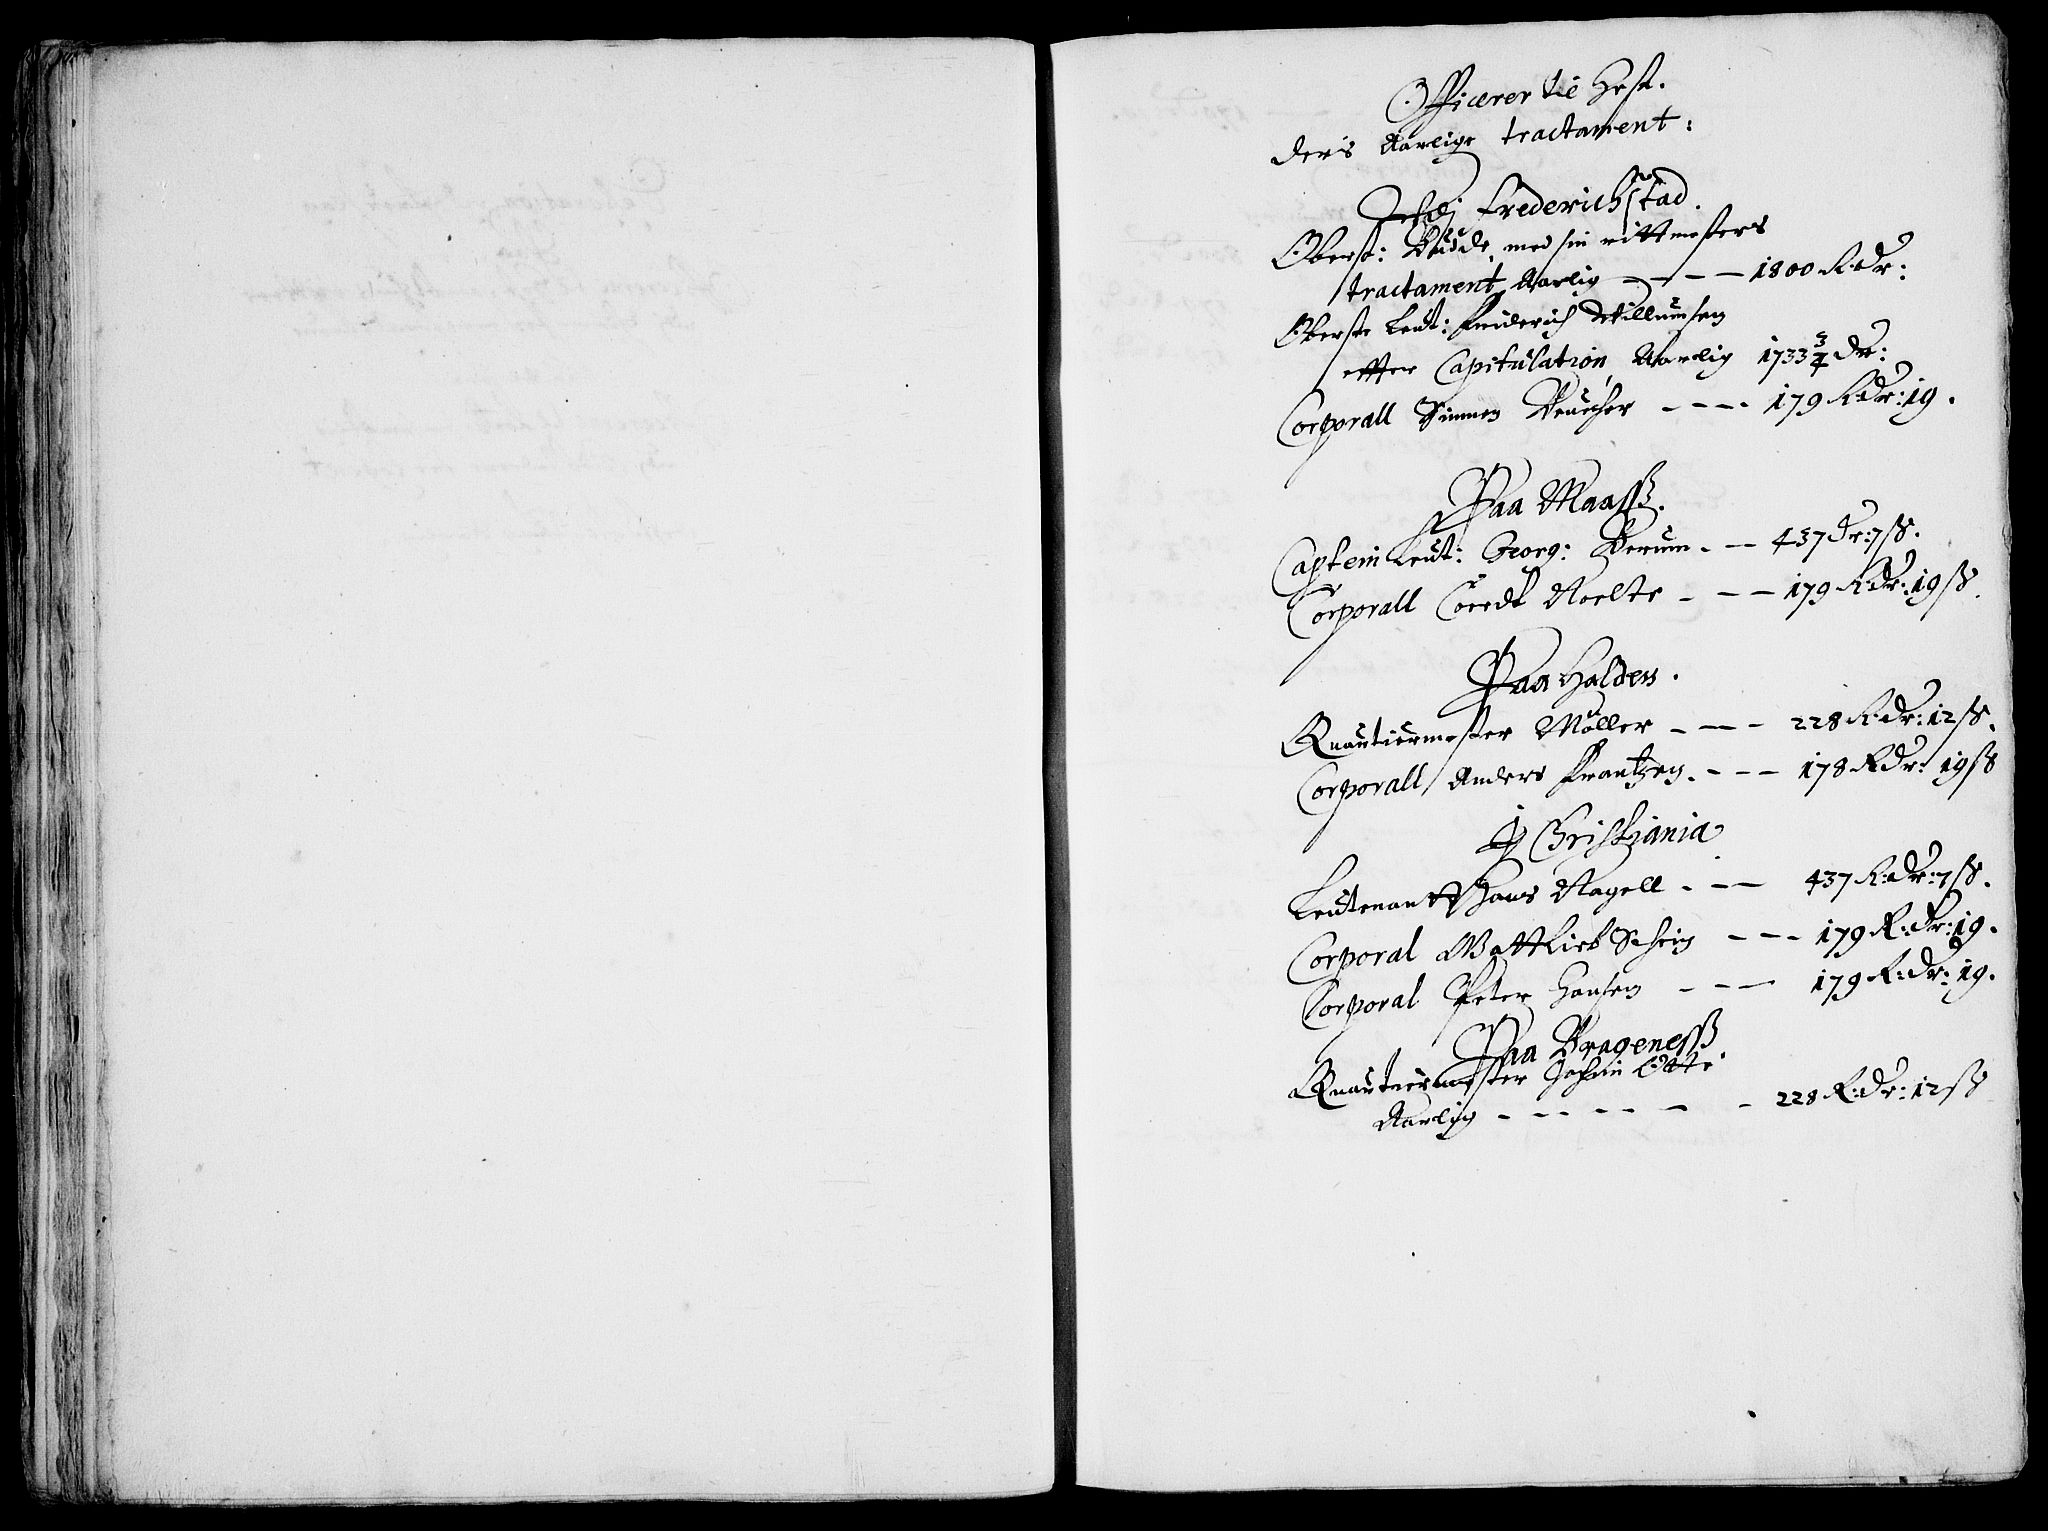 Officerer til Hest.
ders Aarlige tractament:
Udj Frederichstad.
Oberst: Budde, med sin rittmesters
tractament Aarlig - - - 1800 R:dr:
Oberste Leut: Friderich Willumsen
efter Capitulation, Aarlig 1733 3/4 dr:
Corporall Simmen - - - 179 R:dr: 19.
Paa Maass.
Captein Leut: Georg: Berum - - 437 dr: 7 ß.
Corporall Coerdt Nolte - - - 179 R:dr: 19 ß.
Paa Halden.
Quartiermester Møller - - - 228 R:dr: 12 ß.
Corporall Anders Frantzen - - - 178 R:dr: 19 ß
J Christiania
Leutenantt Hans Nagell - - - 437 R:dr: 7 ß.
Corporal Gottlieb - - - 179 R:dr: 19.
Corporal Peter Hansen - - - 179 R:dr: 19.
Paa Brageness
Quartiermester Jochim Otte
Aarlig - - - - - - 228 R:dr: 12 ß